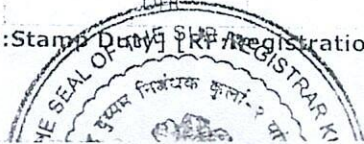 :Stamp Duty] [RF:Registratio
THE SEAL OF THE SUB REGISTRAR K
दुय्यम निबंधक कुर्ला-२ यां